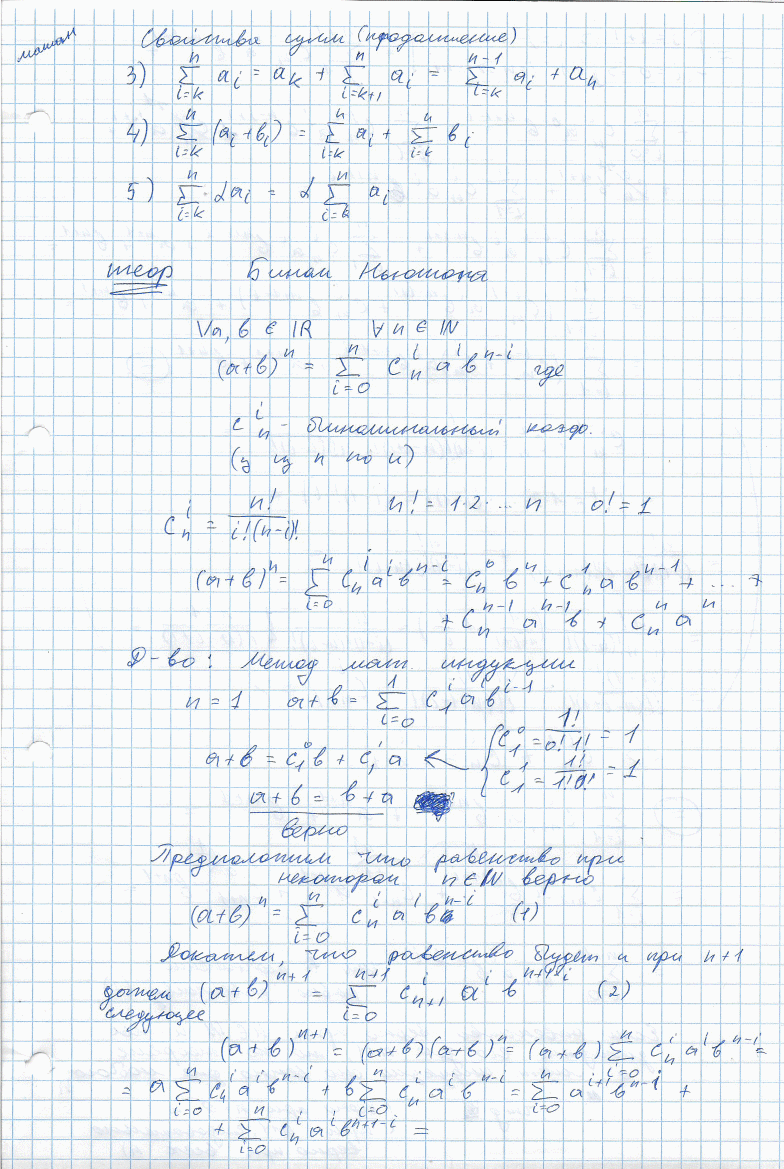 матан
Свойства сумм (продолжение)
3) ∑_{i=k}^{n} a_i = a_k + ∑_{i=k+1}^{n} a_i = ∑_{i=k}^{n-1} a_i + a_n
4) ∑_{i=k}^{n} (a_i + b_i) = ∑_{i=k}^{n} a_i + ∑_{i=k}^{n} b_i
5) ∑_{i=k}^{n} αa_i = α ∑_{i=k}^{n} a_i
теор Бином Ньютона
∀a, b ∈ ℝ ∀n ∈ ℕ
(a+b)^n = ∑_{i=0}^{n} C_n^i a^i b^{n-i} где
C_n^i - биноминальный коэф.
(из n по и)
C_n^i = n!/(i!(n-i)!) n! = 1·2·...n 0! = 1
(a+b)^n = ∑_{i=0}^{n} C_n^i a^i b^{n-i} = C_n^0 b^n + C_n^1 a b^{n-1} + .... +
+ C_n^{n-1} a^{n-1} b + C_n^n a^n
Д-во: Метод мат. индукции
n = 1 a + b = ∑_{i=0}^{1} C_1^i a^i b^{i-1}
C_1^0 = 1!/(0! 1!) = 1
a+b = C_1^0 b + C_1^1 a ←
C_1^1 = 1!/(1! 0!) = 1
a + b = b + a
верно
Предположим что равенство при
некотором n ∈ ℕ верно
(a+b)^n = ∑_{i=0}^{n} C_n^i a^i b^{n-i} (1)
Докажем, что равенство будет и при n+1
докажем (a+b)^{n+1} = ∑_{i=0}^{n+1} C_{n+1}^i a^i b^{n+1-i} (2)
следующее
(a+b)^{n+1} = (a+b)(a+b)^n = (a+b) ∑_{i=0}^{n} C_n^i a^i b^{n-i} =
= a ∑_{i=0}^{n} C_n^i a^i b^{n-i} + b ∑_{i=0}^{n} C_n^i a^i b^{n-i} = ∑_{i=0}^{n} a^{i+1} b^{n-i} +
+ ∑_{i=0}^{n} C_n^i a^i b^{n+1-i} =